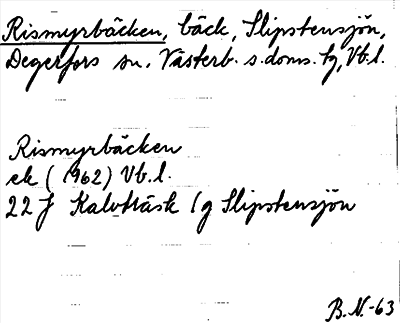 Rismyrbäcken, bäck, Slipstensjön,
Degerfors sn. Västerb. s. doms. tg, Vb. l.
Rismyrbäcken
ek (1962) Vb. l.
22 J Kalvträsk lg Slipstensjön
B. N. -63